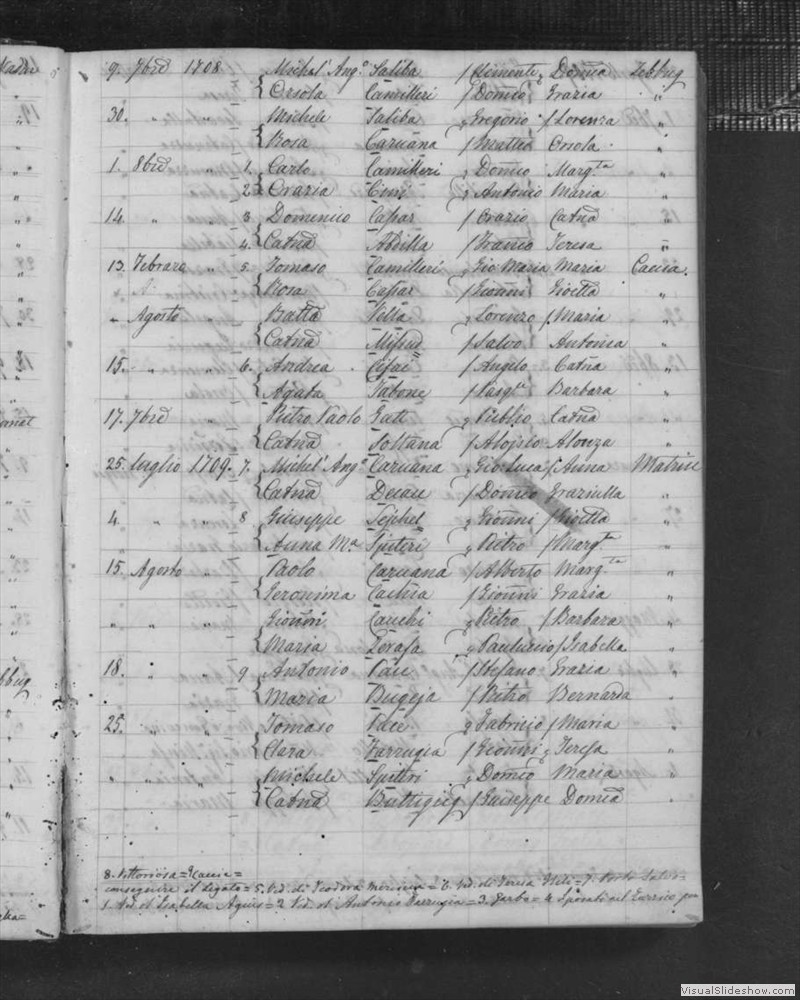 9. 7bre 1708 Michel' Ang.o Saliba / Clemente, Domca Zebbug
Orsola Camilleri / Domco Grazia "
30. " " Michele Saliba , Gregorio / Lorenza "
Rosa Caruana / Matteo Orsola "
1. 8bre " 1. Carlo Camilleri , Domco Marg.ta "
2 Grazia Cumi , Antonio Maria "
14. " " 3 Dominico Caſsar / Orazio Catna "
4. Catna Abdilla / Franco Teresa "
13. Febraro " 5. Tomaso Camilleri , Gio Maria Maria Caccia.
Rosa Caſsar / Gionni Gioella "
" Agosto Batta Vella , Lorenzo / Maria "
Catna Miſsud / Salvo Antonia "
15. " " 6. Andrea / Angelo Catna "
Agata Tabone / Pasq.le Barbara "
17. 7bre " Pietro Paolo Gatt , Publio Catna "
Catna Soltana / Aloisio Alonza "
25. Luglio 1709. 7. Michel' Ang.o Caruana , Gio Luca / Anna Matrice
Catna / Domco Graziulla "
4. " " 8 Giuseppe , Gionni / Gioella "
Anna Ma Spiteri , Pietro / Marg.ta "
15. Agosto " Paolo Caruana / Alberto Marg.ta "
Geronima Cachia / Gionni Grazia "
" " " Gionni Cauchi , Pietro / Barbara "
Maria Zerafa , Pauluccio / Isabella "
18. " " 9 Antonio Pace / Stefano Grazia "
Maria Bugeja / Pietro Bernarda "
25. " " Tomaso Pace , Fabricio / Maria "
Clara Farrugia / Gionni , Teresa "
" " " Michele Spiteri , Domco Maria "
Catna Buttigieg / Giuseppe Domca "
8. Vittoriosa =
conseguire il Legato = 5. Vid. di Teodora = 6. Vid. di Teresa = 7. Porto Salvo =
1. Vid di Isabella Agius = 2 Vid. di Antonio Farrugia = 3. Garbo = 4. Sposati nel
VisualSlideshow.com